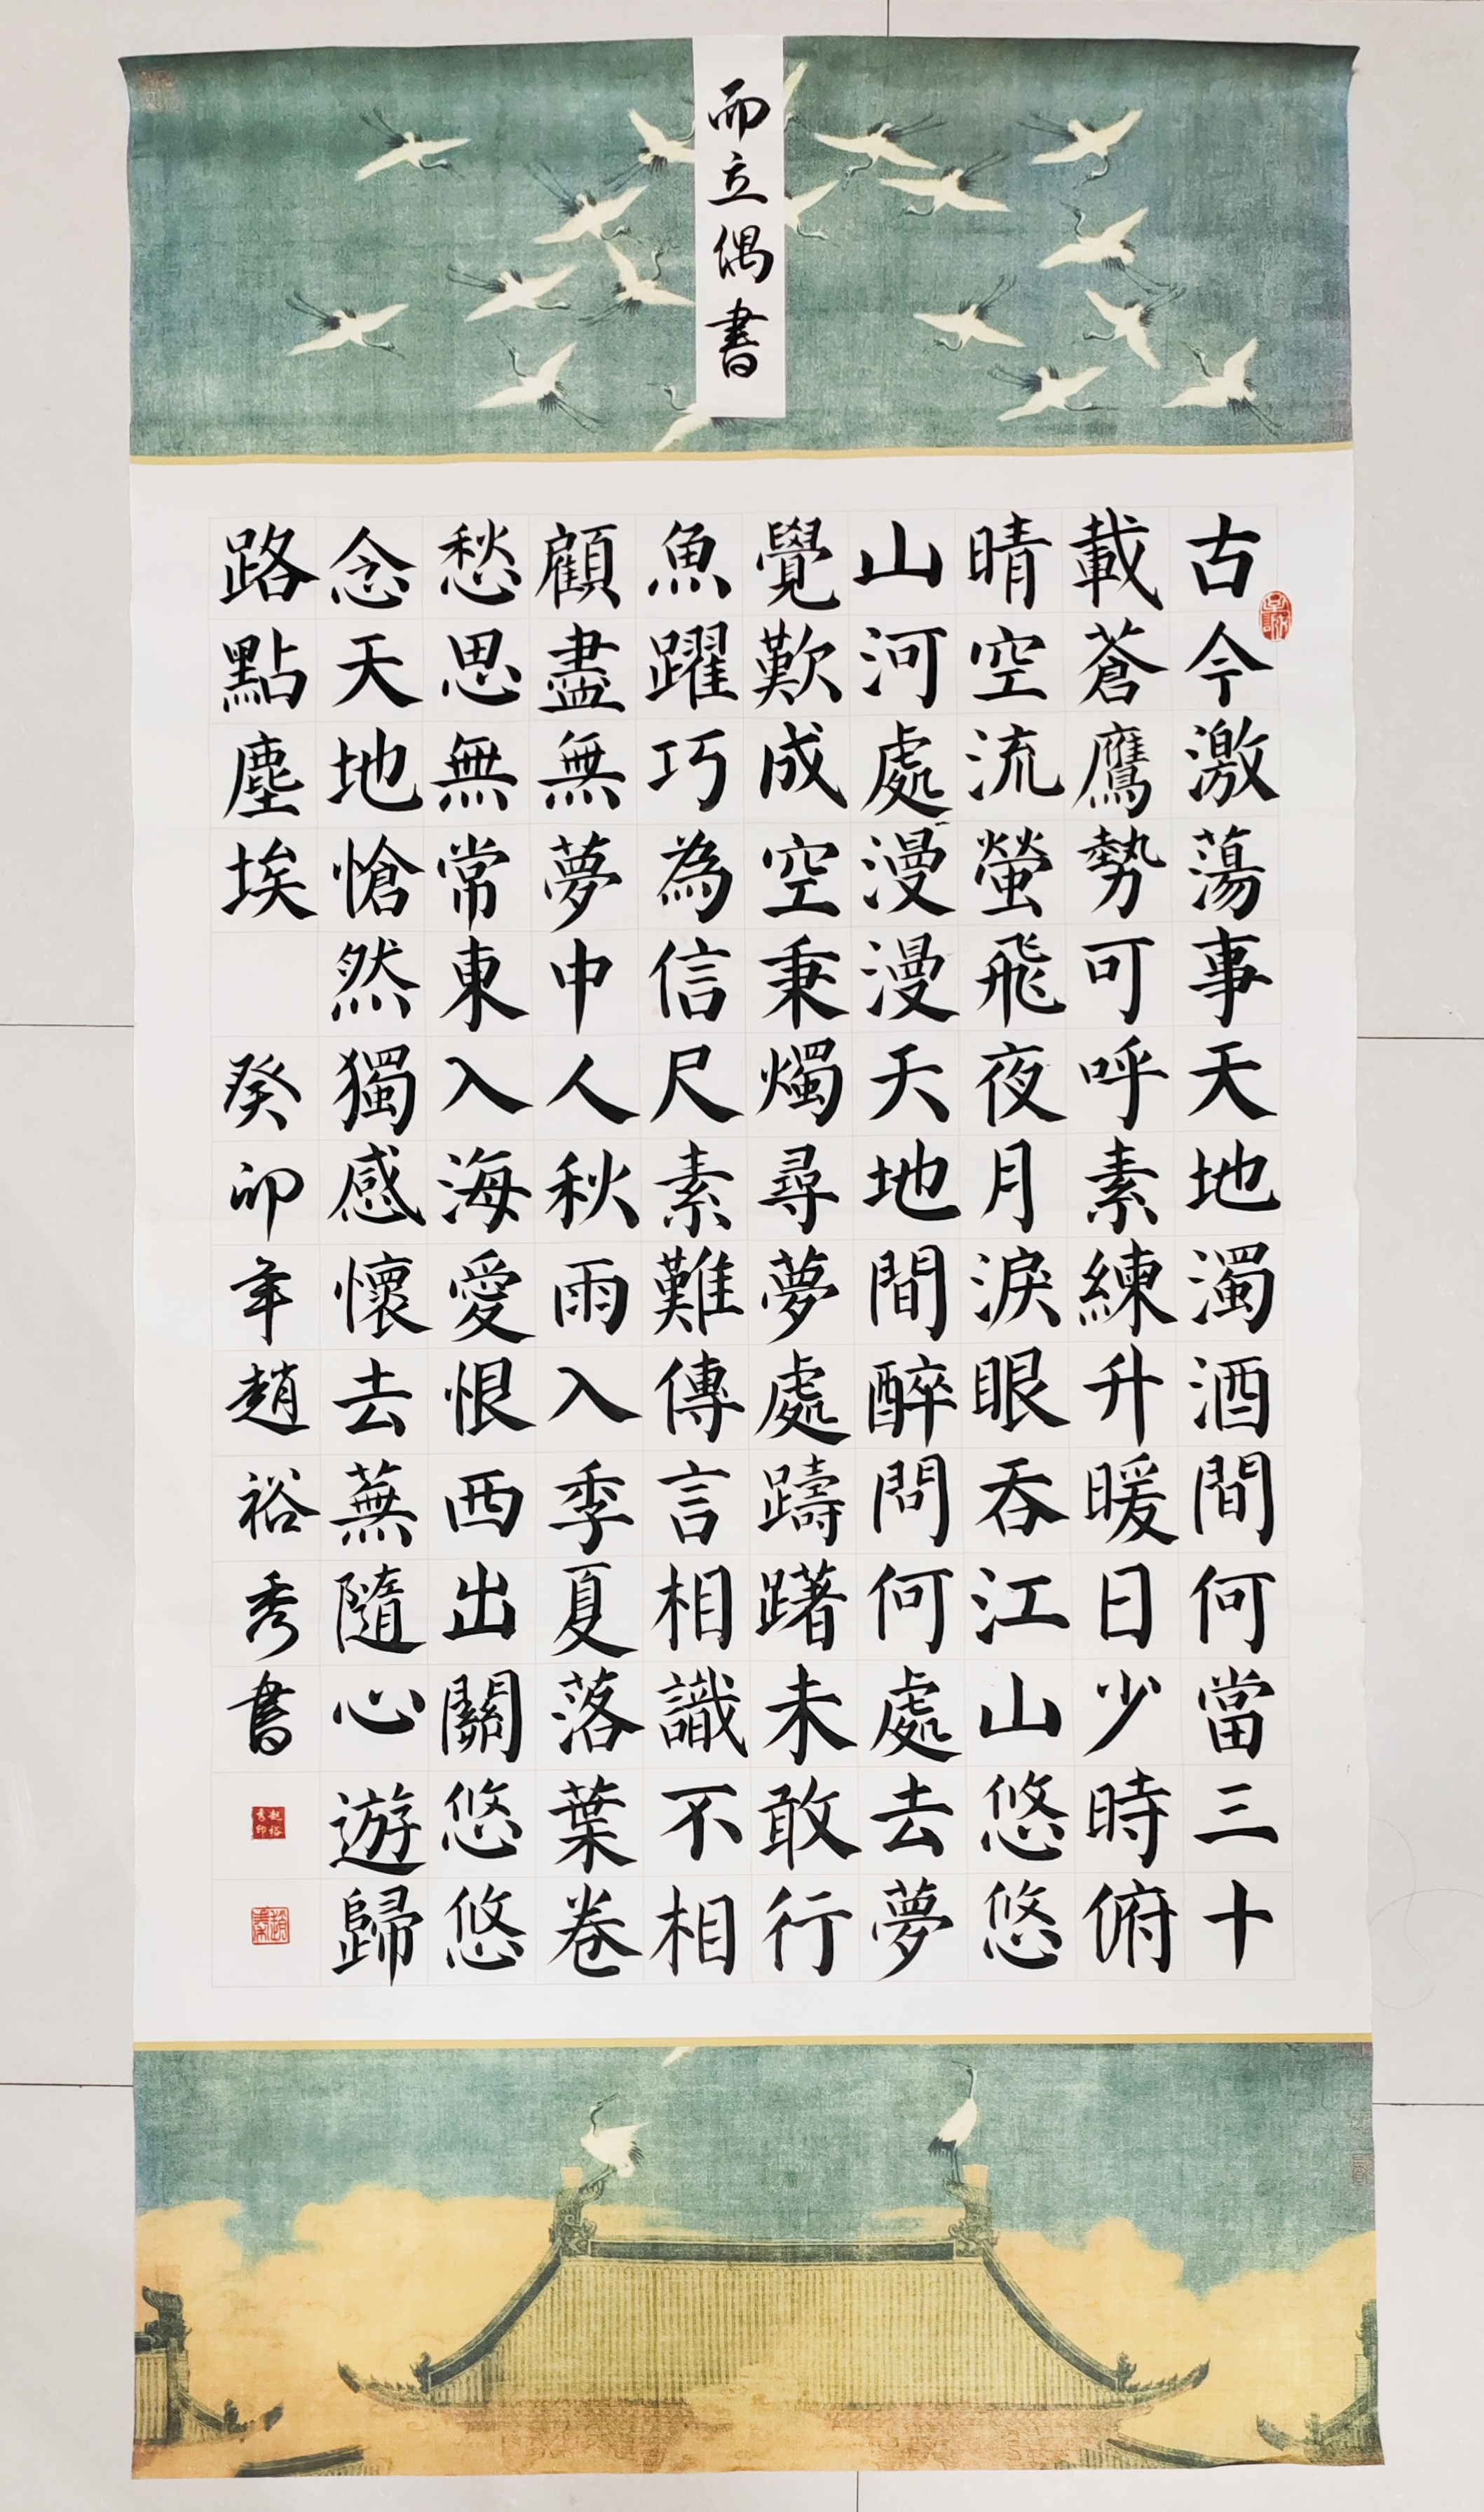 而立偶書
古今激蕩事天地濁酒間何當三十
載蒼鷹勢可呼素練升暖日少時俯
晴空流螢飛夜月淚眼吞江山悠悠
山河處漫漫天地間醉問何處去夢
覺歎成空秉燭尋夢處躊躇未敢行
魚躍巧為信尺素難傳言相識不相
顧盡無夢中人秋雨入季夏落葉卷
愁思無常東入海愛恨西出關悠悠
念天地愴然獨感懷去蕪隨心遊歸
路點塵埃 癸卯年趙裕秀書
趙裕秀印